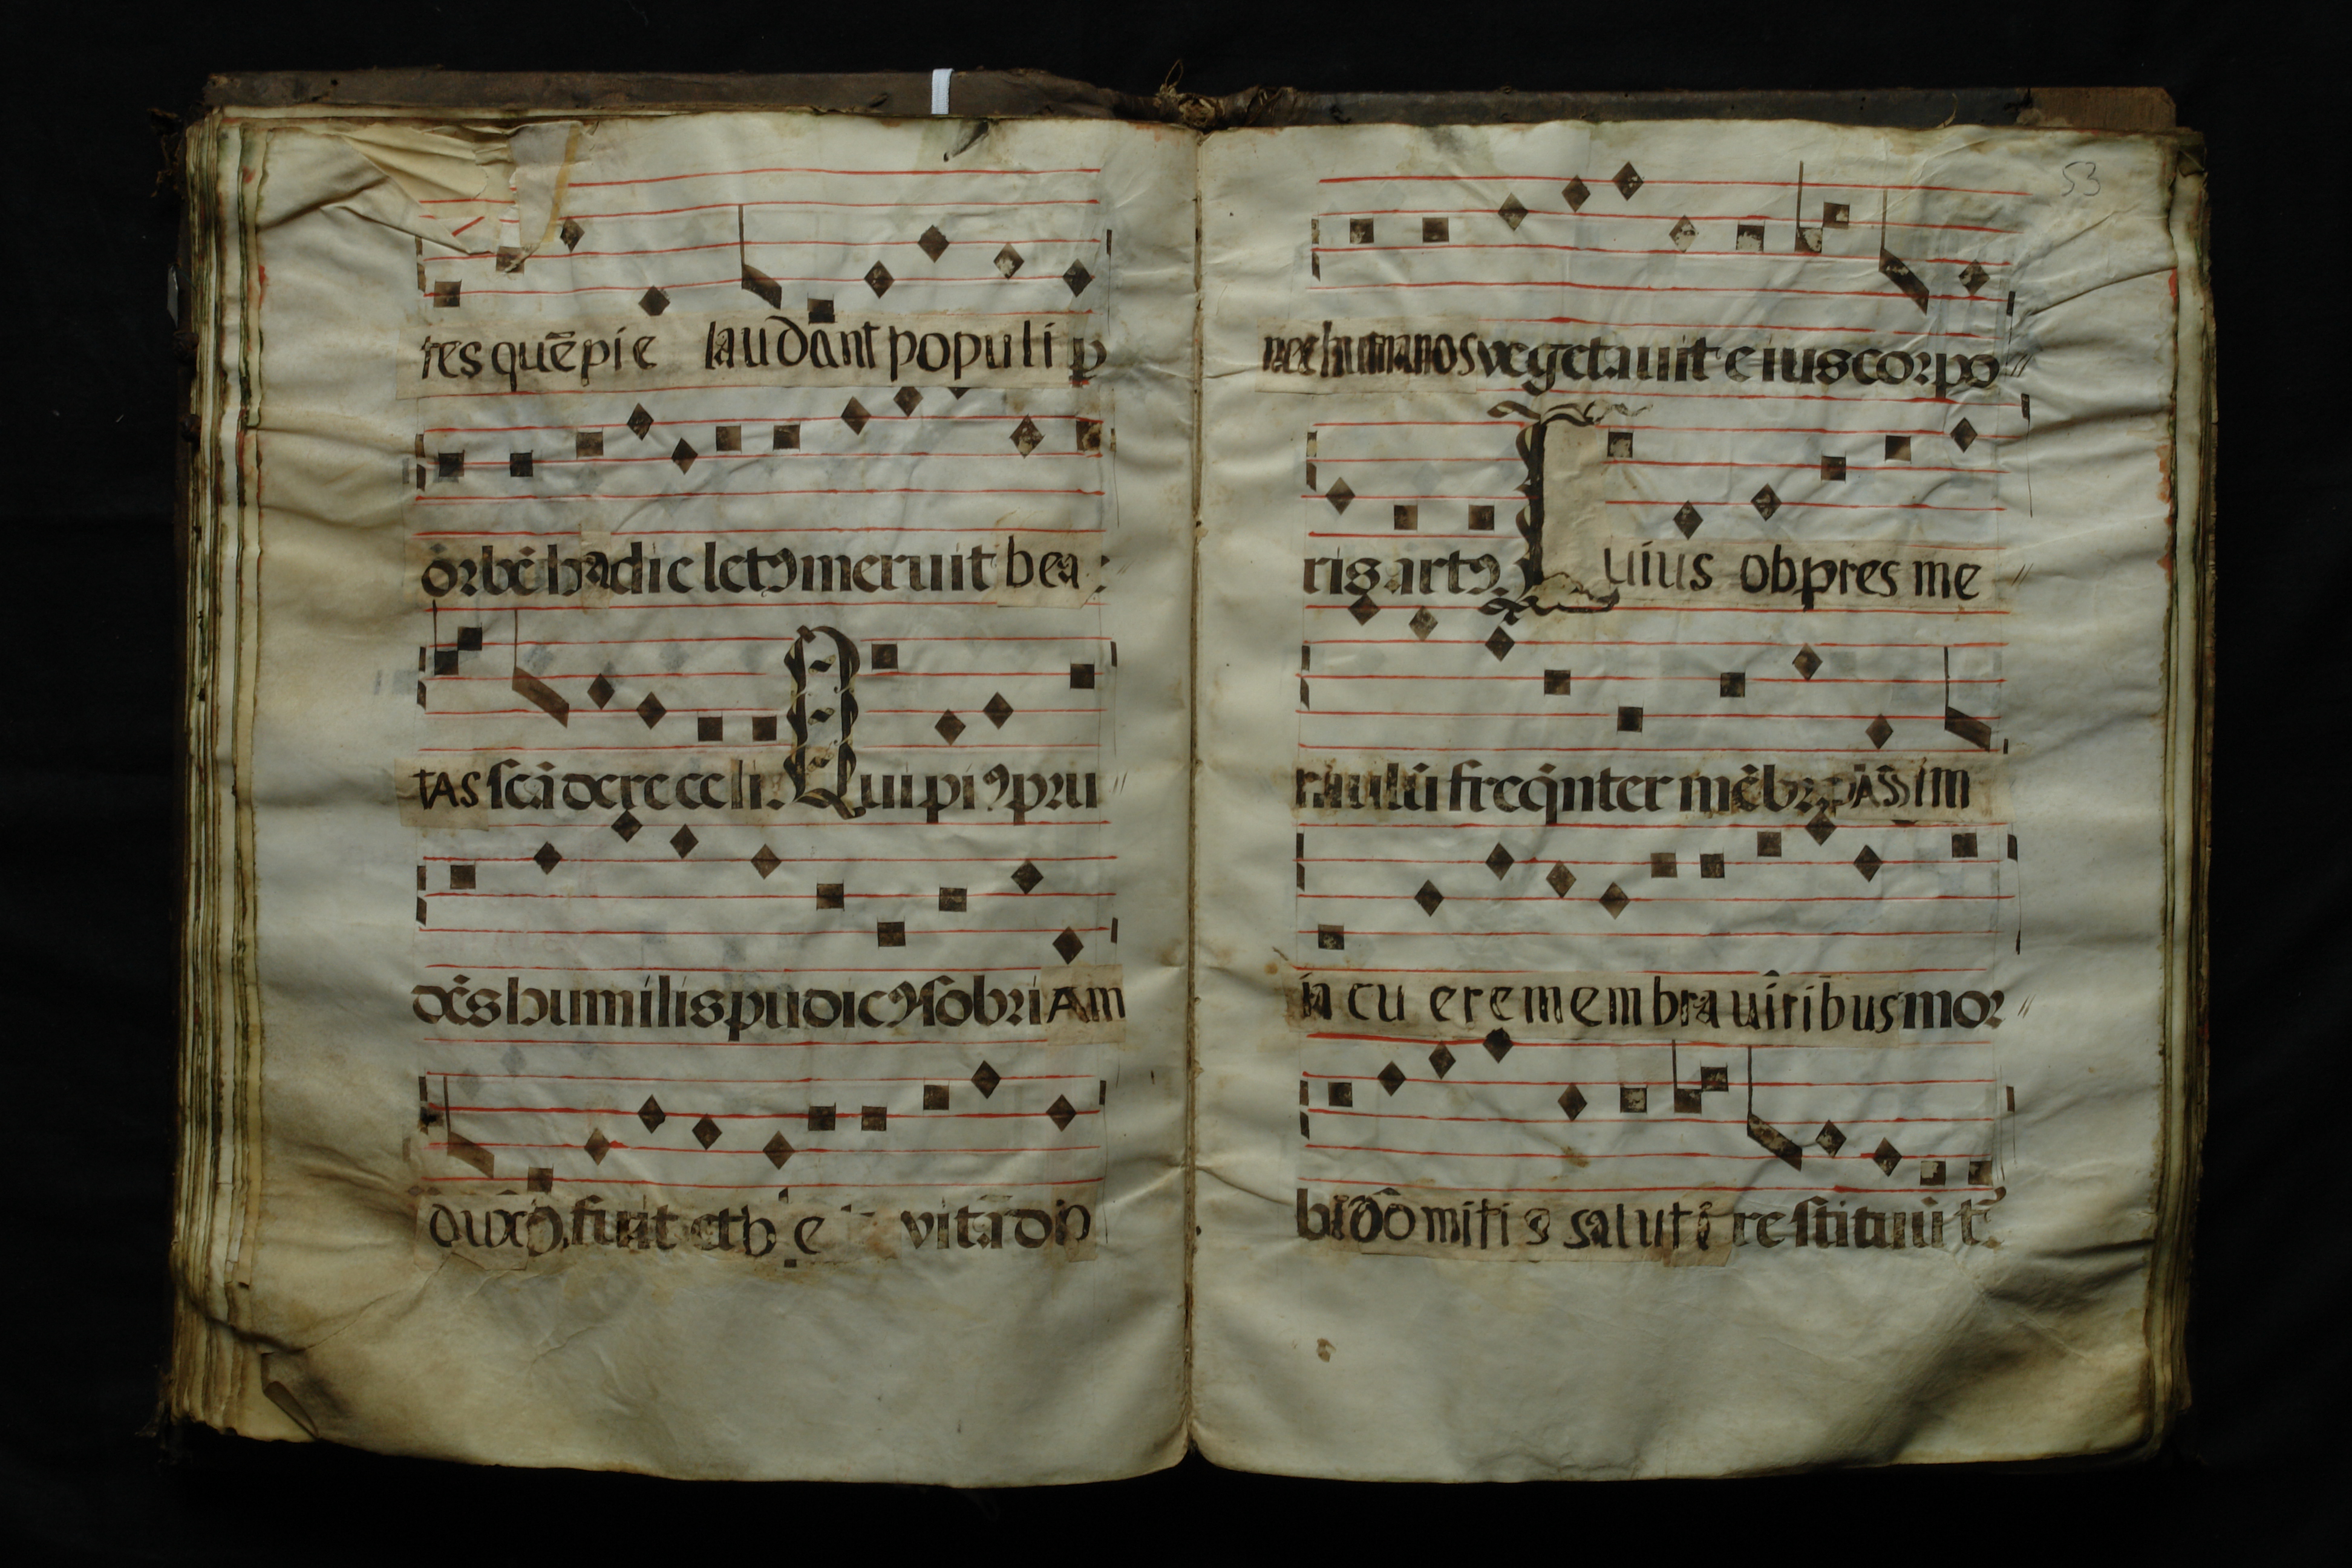 res quē pie laudant populi p
orbē hac die letꝰ meruit bea
TAS scādere celi. Qui piꝰ pru
dēs humilis pudicꝰ sobriAm
duxꝰ fuit et b e vitā do
53
nos vegetauit eius corpo
ris artꝰ. Cuius ob pres me
frequ̇nter mēbr pASSim
in cu ere membra uiribus mor
domitis saluti restituūt